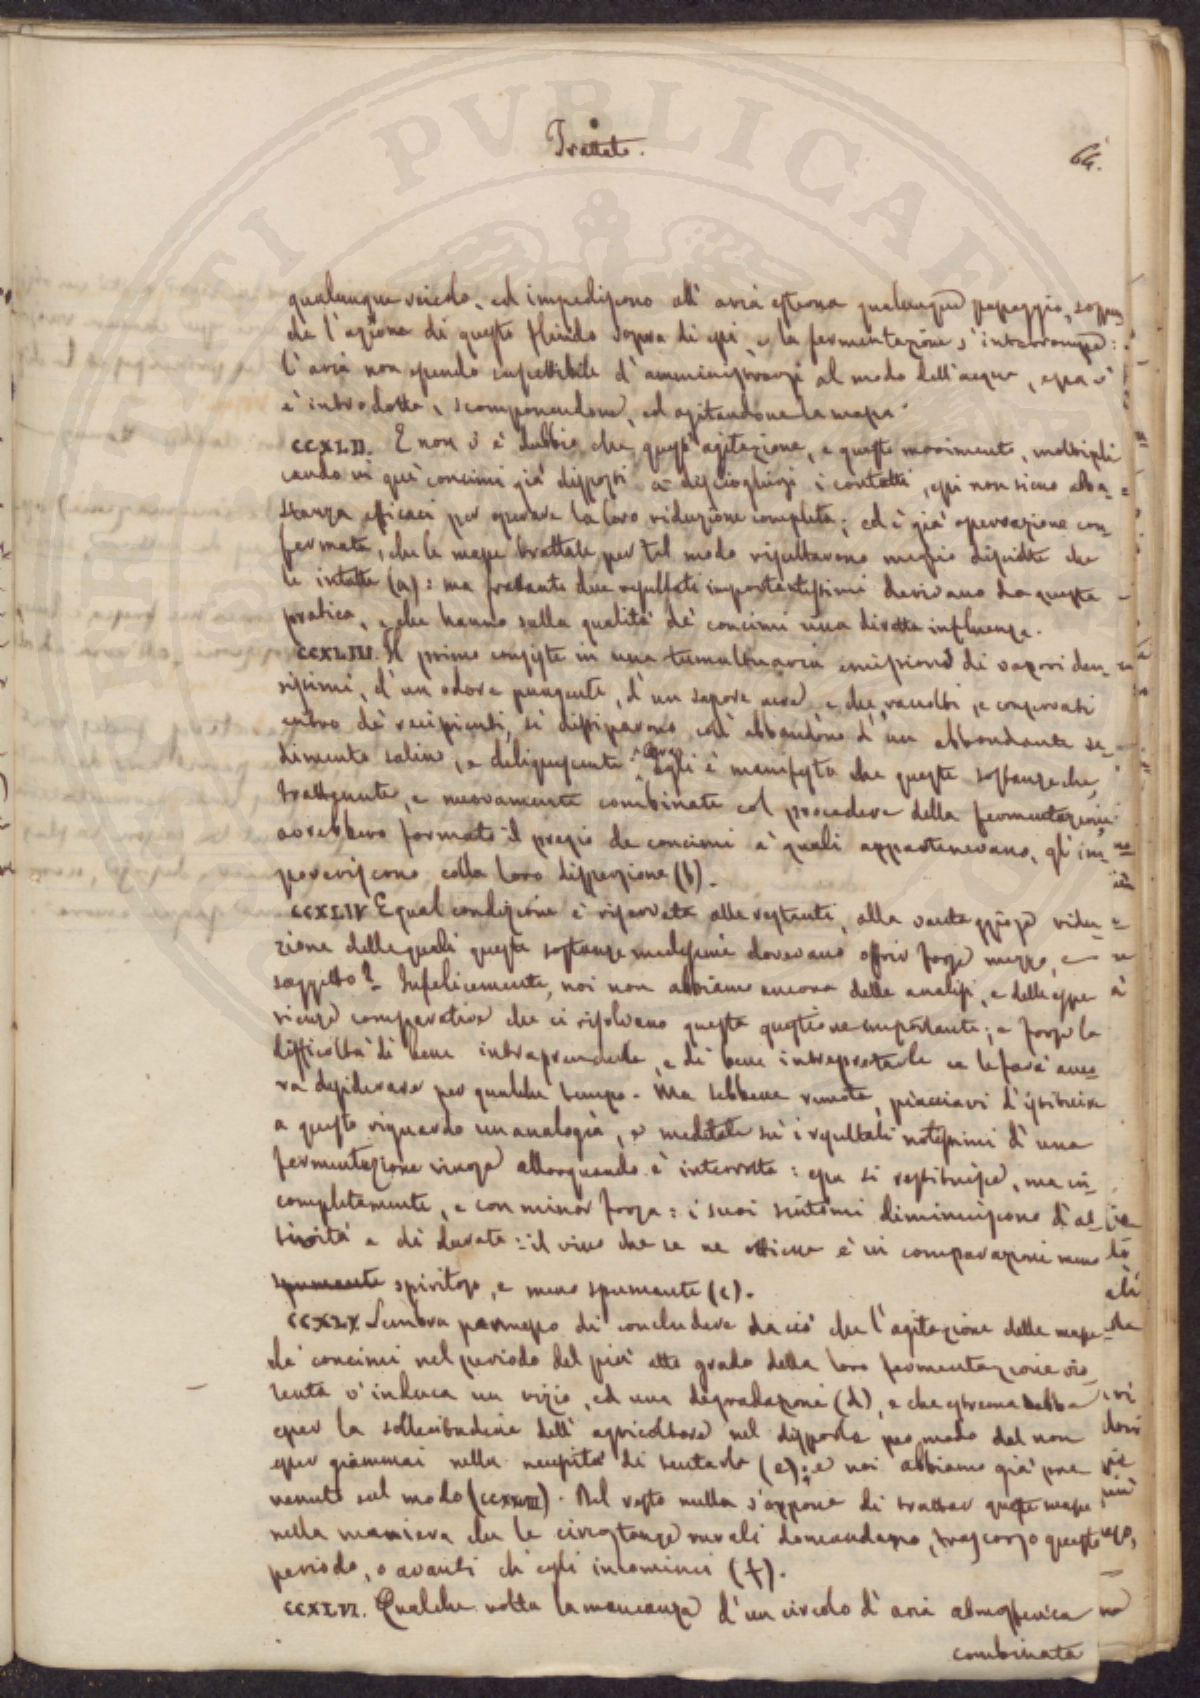 Trattato.
64.
qualunque veicolo, ed impediscono all' aria esterna qualunque passaggio, sospen
de l'azione di questo fluido sopra di essi e la fermentazione s'interrompe:
l'aria non essendo suscettibile d'amministrarsi al modo dell'acqua, essa v'
è introdotta, scomponendone, ed agitandone la massa.
CCXLII. E non v'è dubbio che quest'agitazione, e questo movimento, moltipli
cando vi que' concimi già disposti a disciogliersi i contatti, essi non sieno abba-
stanza efficaci per operare la loro riduzione completa; ed è già operazione con-
fermata, che le masse trattate per tal modo risultarono meglio digerite che
le intatte (a): ma frattanto due resultati importantissimi derivano da questa
pratica, e che hanno sulla qualità de' concimi una diretta influenza.
CCXLIII. Il primo consiste in una tumultuaria emissione di vapori den-
sissimi, d'un odore pungente, d'un sapore acre, e che raccolti, e conservati
entro de' recipienti, si dissiparono coll' abbandono d'un abbondante se-
dimento salino, e deliquescente. Ora egli è manifesto che queste sostanze che,
trattenute, e nuovamente combinate col procedere della fermentazione
avrebbero formato il pregio de concimi a' quali appartenevano, gl'im-
poveriscono colla loro dispersione (b).
CCXLIV Equal condizione è riservata alle restanti, alla vantaggiosa ridu-
zione delle quali queste sostanze medesime dovevano offrir forse mezzo, e
soggetto? Infelicemente, noi non abbiamo ancora delle analisi, e delle espe
rienze comparative che ci risolvano questa questione importante; e forse la
difficoltà di bene intraprenderle, e di bene interpretarle ce le farà anco-
ra desiderare per qualche tempo. Ma sebbene remota, piacciavi d'istituire
a questo riguardo un analogia, e meditate su' i resultati notissimi d'una
fermentazione vinosa allorquando è interrotta: essa si restituisce, ma in-
completamente, e con minor forza: i suoi sintomi diminuiscono d'at-
tività e di durata: il vino che se ne ottiene è in comparazione meno
spumante spiritoso, e meno spumante (c).
CCXLV. Sembra permesso di concludere da ciò che l'agitazione delle masse
de' concimi nel periodo del più alto grado della loro fermentazione vio-
lenta v'induca un vizio, ed una degradazione (d), e che estrema debba
esser la sollecitudine dell' agricoltore nel disporle per modo dal non
esser giammai nella necessità di tentarla (e): e noi abbiamo già pre
venuto sul modo (CCXXVIII). Del resto nulla s'oppone di trattar queste masse
nella maniera che le circostanze rurali domandano, trascorso questo
periodo, o avanti ch'egli incominci (f).
CCXLVI. Qualche volta la mancanza d'un circolo d'aria atmosferica
combinata